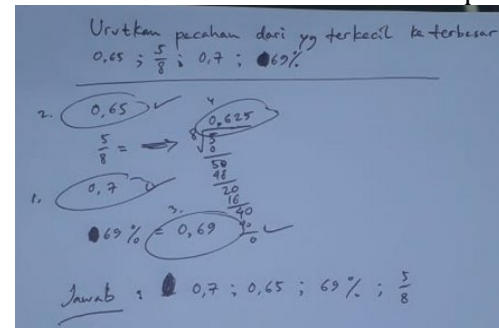 Urutkan pecahan dari yg terkecil ke terbesar
0,65 ; 5/8 ; 0,7 ; 69%
2. 0,65 ✓
4
5/8 = → 0,625
8√5
0
50
48
20
16
40
40
0
1. 0,7 ✓
3.
69% = 0,69 ✓
Jawab : 0,7 ; 0,65 ; 69% ; 5/8